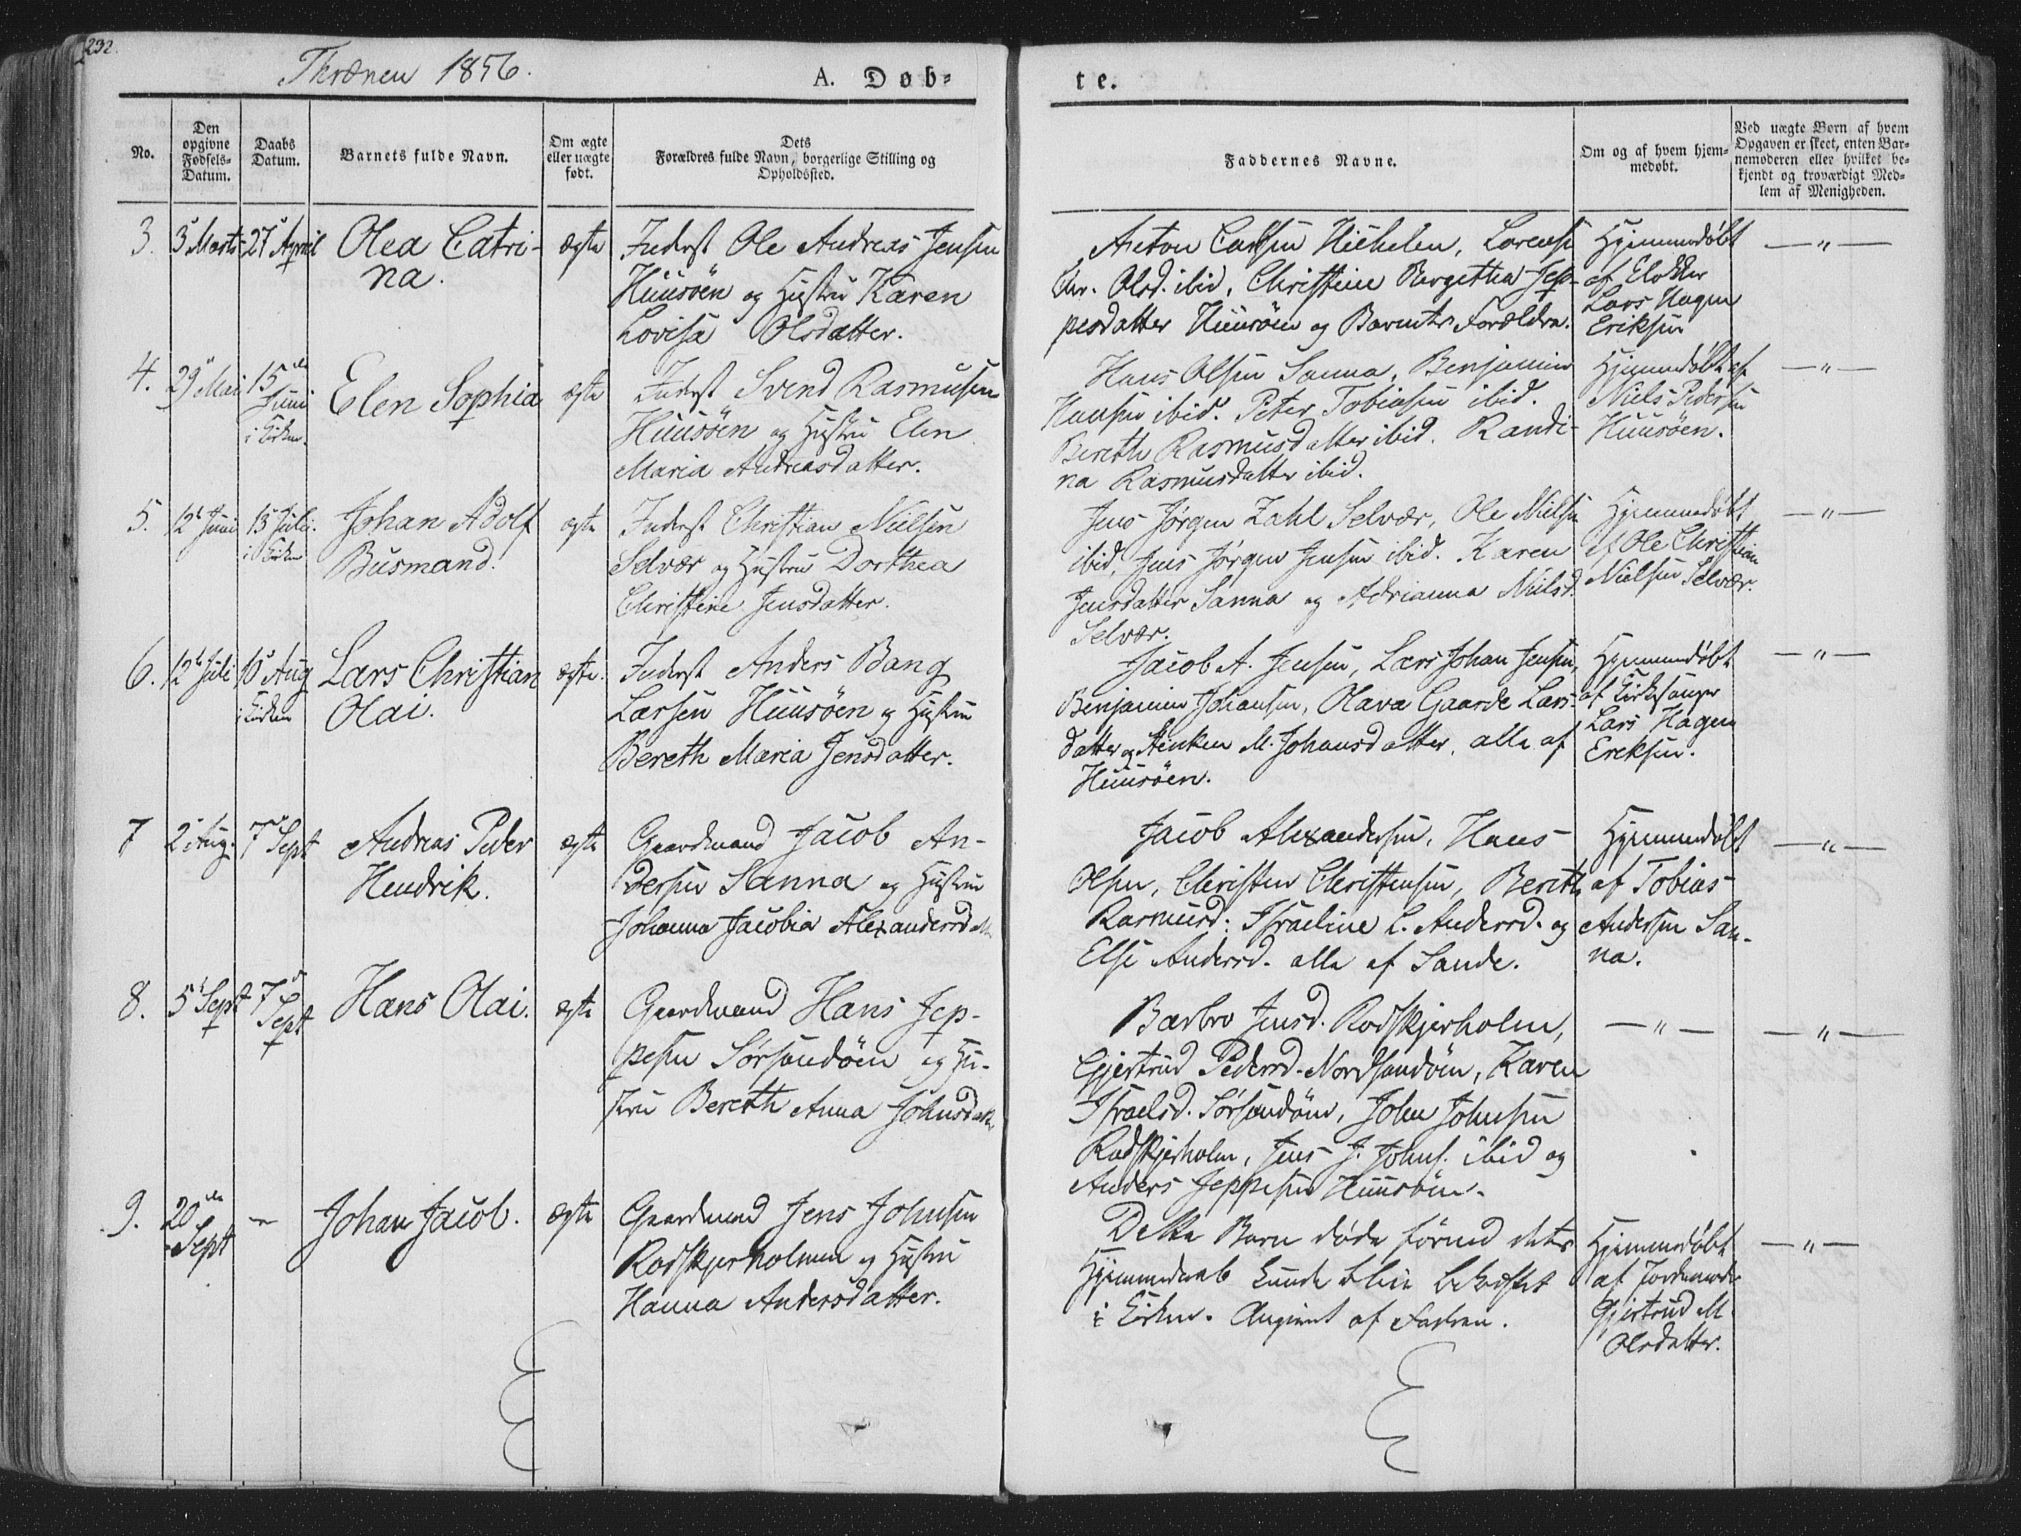 232.
Thrænen 1856.
A. Døb-
te.
No.
Den opgivne Fødsels-Datum.
Daabs Datum.
Barnets fulde Navn.
Om ægte eller uægte født.
Dets Forældres fulde Navn, borgerlige Stilling og Opholdssted.
Faddernes Navne.
Om og af hvem hjem-medøbt.
Ved uægte Børn af hvem Opgaven er skeet, enten Bar-nemoderen eller hvilket be-kjendt og troværdigt Med-lem af Menigheden.
3. 3 Marts 27 April Olea Catri-
na.
ægte
Inderst Ole Andreas Jensen
Huusøen og Hustru Karen
Lovisa Olsdatter.
Anton Larsen Lorents
Chr. Olsd. ibid, Christine Bergitha Jep-
pesdatter Huusøen og Barnets Forældre.
Hjemmedøbt
af Klokker
Lars Hagen
Eriksen
— " —
4. 29 Mai 15de
Juni
i Kirken
Elen Sophia
ægte
Inderst Svend Rasmusen
Huusøen og Hustru Elen
Maria Andreasdatter.
Hans Olsen Sanna, Benjamin
Hansen ibid. Peter Tobiasen ibid.
Bereth Rasmusdatter ibid. Randi-
na Rasmusdatter ibid.
Hjemmedøbt af
Niels Pedersen
Huusøen.
— " —
5. 12 Juni 13 Juli
i Kirken
Johan Adolf
Busmand.
ægte
Inderst Christian Nielsen
Selvær og Hustru Dorthea
Christine Jensdatter.
Jens Jørgen Zahl Selvær, Ole Nielsen
ibid, Jens Jørgen Jensen ibid. Karen
Jensdatter Sanna og Adrianna Nielsd.
Selvær.
Hjemmedøbt
af Ole Christian
Nielsen Selvær.
— " —
6. 12 Juli 10 Aug
i Kirken
Lars Christian
Olai.
ægte.
Inderst Anders Bang
Larsen Huusøen og Hustru
Bereth Maria Jensdatter.
Jacob A. Jensen, Lars Johan Jensen,
Benjamin Johansen, Olava Gaarde Lars-
datter og Anken M. Johansdatter, alle af
Huusøen.
Hjemmedøbt
af Kirkesanger
Lars Hagen
Eriksen.
— " —
7 2 Aug. 7 Sept
Andreas Peder
Hendrik.
ægte
Gaardmand Jacob An-
dersen Sanna og Hustru
Johanna Jacobia Alexandersdatter
Jacob Alexandersen, Hans
Olsen, Christen Christensen, Bereth
Rasmusd: Israeline L. Andersd. og
Else Andersd. alle af Sande.
Hjemmedøbt
af Tobias
Andersen San-
na.
— " —
8. 5 Sept 7
Sept
Hans Olai.
ægte
Gaardmand Hans Jep-
pesen Sørsandøen og Hu-
stru Bereth Anna Johnsdatter
Barbro Jensd. Rødskjerholm,
Gjertrud Pedersd. Nordsandøen, Karen
Israelsd. Sørsandøen, John Johnsen
Rødskjerholm, Jens J. Johns. ibid og
Anders Jeppesen Huusøen.
— " —
— " —
9. 20de
Sept
—
Johan Jacob.
ægte
Gaardmand Jens Johnsen
Rødskjerholmen og Hustru
Hanna Andersdatter.
Dette Barn døde førend dets
Hjemmedaab kunde blive bekræftet
i Kirken. Angivet af Faderen.
Hjemmedøbt
af Jordemoder
Gjertrud M.
Olsdatter.
— " —